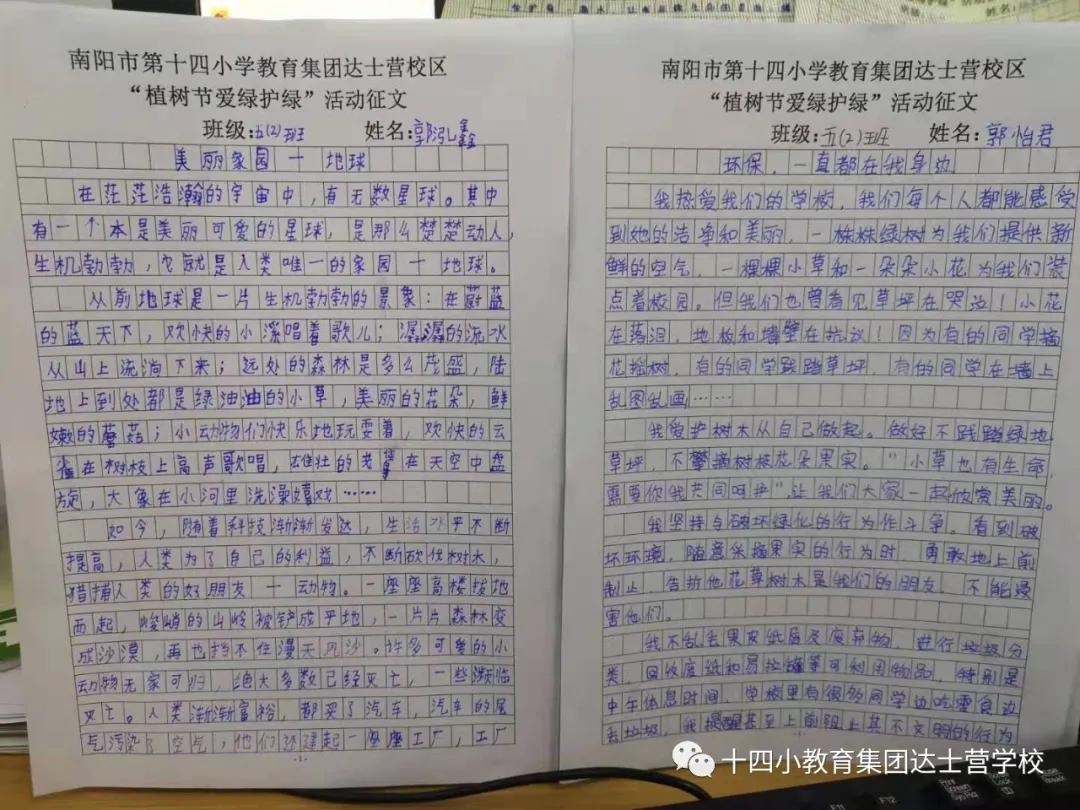 南阳市第十四小学教育集团达士营校区
“植树节爱绿护绿”活动征文
班级:五(2)班 姓名:郭泓鑫
美丽家园一地球
在茫茫浩瀚的宇宙中,有无数星球。其中
有一个本是美丽可爱的星球,是那么楚楚动人,
生机勃勃,它就是人类唯一的家园一地球。
从前地球是一片生机勃勃的景象:在蔚蓝
的蓝天下,欢快的小溪唱着歌儿;潺潺的流水
从山上流淌下来;远处的森林是多么茂盛,陆
地上到处都是绿油油的小草,美丽的花朵,鲜
嫩的蘑菇;小动物们快乐地玩耍着,欢快的云
雀在树枝上高声歌唱,雄壮的老在天空中盘
旋,大象在小河里洗澡嬉戏……
如今,随着科技渐渐发达,生活水平不断
提高,人类为了自己的利益,不断砍伐树木,
猎捕人类的好朋友一动物。一座座高楼拔地
而起,峻峭的山岭被铲成平地,一片片森林变
成沙漠,再也挡不住漫天风沙。许多可爱的小
动物无家可归,绝大多数已经灭亡,一些濒临
灭亡。人类渐渐富裕,都买了汽车,汽车的尾
气污染了空气;他们还建起一座座工厂,工厂
南阳市第十四小学教育集团达士营校区
“植树节爱绿护绿”活动征文
班级:五(2)班 姓名:郭怡君
环保,一直都在我身边
我热爱我们的学校,我们每个人都能感受
到她的洁净和美丽,一株株绿树为我们提供新
鲜的空气,一棵棵小草和一朵朵小花为我们装
点着校园。但我们也曾看见草坪在哭泣!小花
在落泪,地板和墙壁在抗议!因为有的同学摘
花摇树,有的同学践踏草坪,有的同学在墙上
乱图乱画……
我爱护树木从自己做起。做好不践踏绿地
草坪,不攀摘树枝花朵果实。“小草也有生命,
需要你我共同呵护”让我们大家一起欣赏美丽。
我坚持与破坏绿化的行为作斗争。看到破
坏环境,随意采摘果实的行为时,勇敢地上前
制止,告诉他花草树木是我们的朋友,不能侵
害他们。
我不乱丢果皮纸屑及废弃物,进行垃圾分
类,回收废纸和易拉罐等可利用物品,特别是
中午休息时间,学校里有很多同学边吃零食边
丢垃圾,我提醒甚至上前阻止其不文明的行为
十四小教育集团达士营学校